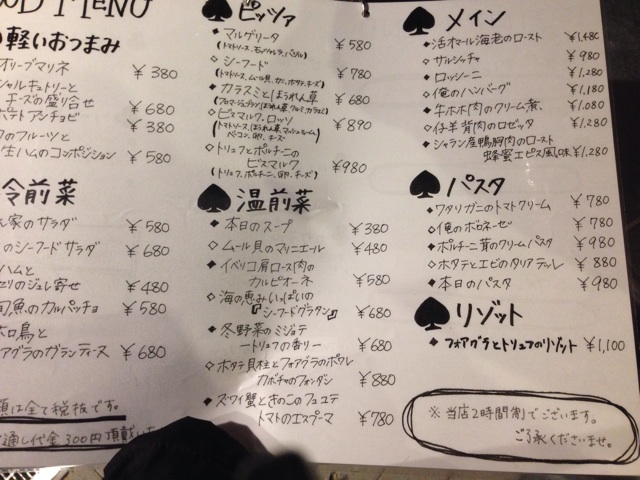 OD MENU
軽いおつまみ
オリーブマリネ ¥380
シャルキュトリーと
チーズの盛り合せ ¥680
ポテトアンチョビ ¥380
のフルーツと
生ハムのコンポジション ¥580
冷前菜
家のサラダ ¥580
のシーフードサラダ ¥680
ハムと
のジュレ寄せ ¥480
旬魚のカルパッチョ ¥580
ホロ鳥と
フォアグラのガランティーヌ ¥680
額は全て税抜です。
通し代金300円頂戴いた
ピッツァ
マルゲリータ
(トマトソース、モッツァレラ、バジル) ¥580
シーフード
(トマトソース、ムール貝、カニ、ホタテ、チーズ) ¥780
カラスミとほうれん草 ¥680
ビスマルク・ロッソ
(トマトソース、ほうれん草、マッシュルーム
ベーコン、卵、チーズ ¥890
トリュフとポルチーニの
ビスマルク
(トリュフ、ポルチーニ、卵、チーズ) ¥980
温前菜
本日のスープ ¥380
ムール貝のマリニエール ¥480
イベリコ肩ロース肉の
カルピオーネ ¥580
海の恵みいっぱいの
『シーフードグラタン』 ¥680
冬野菜のミジョテ
ートリュフの香りー ¥680
ホタテ貝柱とフォアグラのポワレ
カボチャのフォンダン ¥880
ズワイ蟹ときのこのフリュテ
トマトのエスプーマ ¥780
メイン
活オマール海老のロースト ¥1,480
サルシッチャ ¥980
ロッシーニ ¥1,280
俺のハンバーグ ¥1,180
牛ホホ肉のクリーム煮 ¥1,080
仔羊背肉のロゼッタ ¥1,280
シャラン産鴨胸肉のロースト
蜂蜜エピス風味 ¥1,280
パスタ
ワタリガニのトマトクリーム ¥780
俺のボロネーゼ ¥780
ポルチーニ茸のクリームパスタ ¥980
ホタテとエビのタリアテッレ ¥880
本日のパスタ ¥980
リゾット
フォアグラとトリュフのリゾット ¥1,100
※当店2時間制でございます。
ご了承くださいませ。